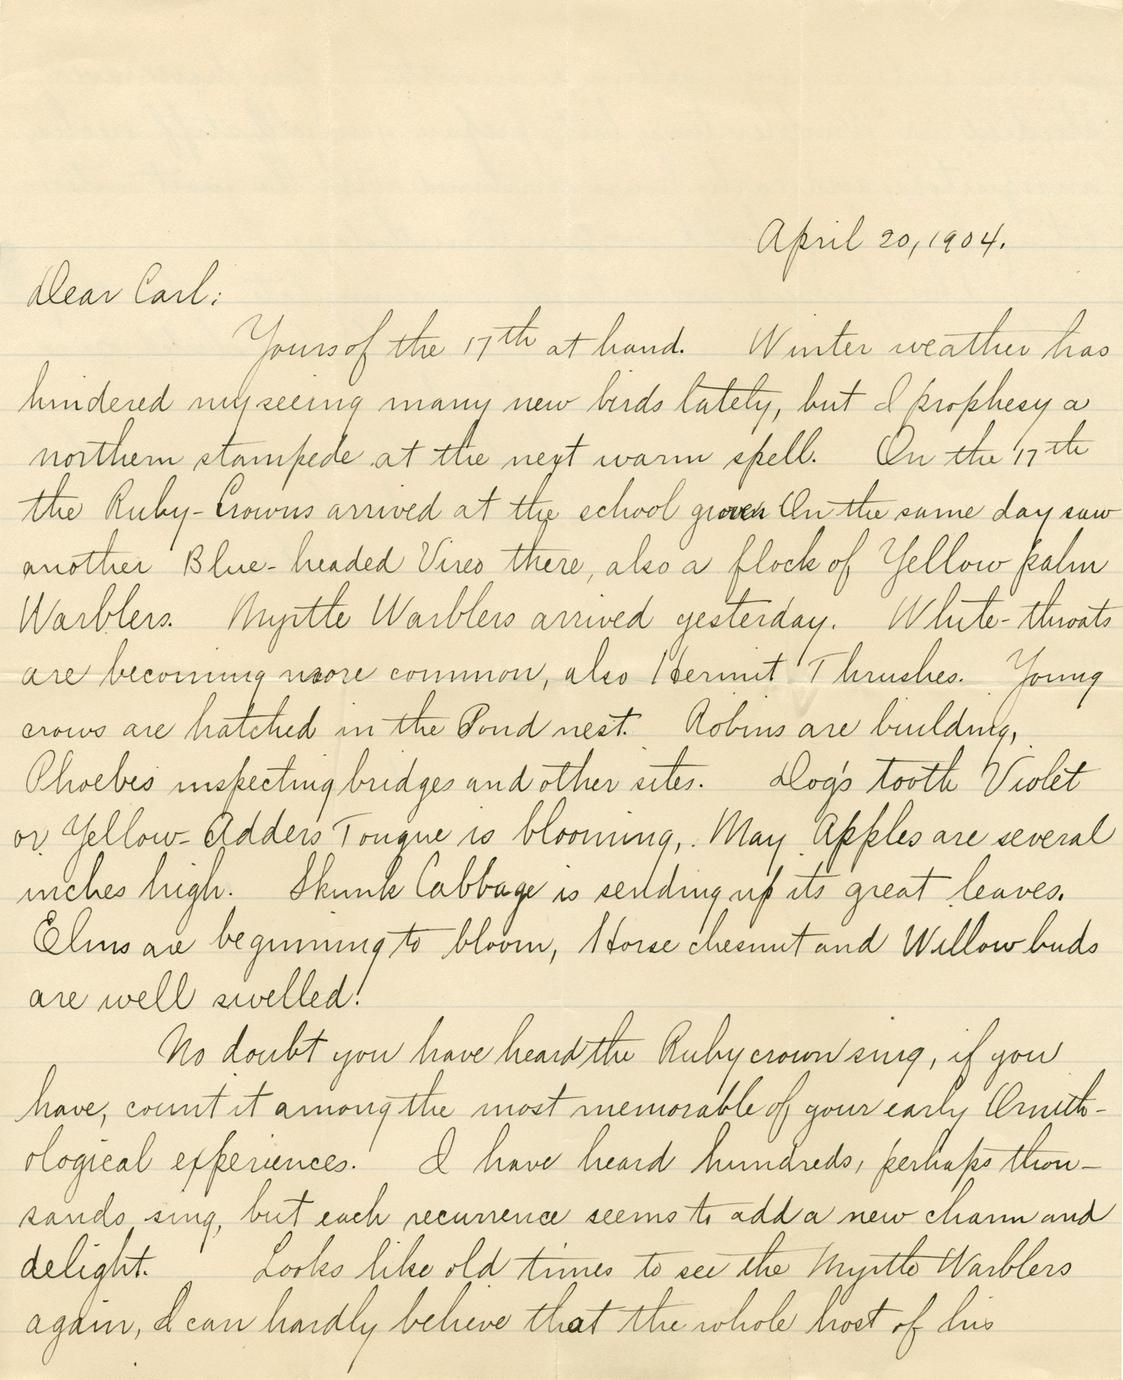 April 20, 1904.
Dear Carl:
Yours of the 17th at hand. Winter weather has
hindered my seeing many new birds lately, but I prophesy a
northern stampede at the next warm spell. On the 17th
the Ruby-Crowns arrived at the school On the same day saw
another Blue-headed Vireo there, also a flock of Yellow palm
Warblers. Myrtle Warblers arrived yesterday. White-throats
are becoming more common, also Hermit Thrushes. Young
crows are hatched in the Pond nest. Robins are building,
Phoebes inspecting bridges and other sites. Dog's tooth Violet
or Yellow-Adders Tongue is blooming, May Apples are several
inches high. Skunk Cabbage is sending up its great leaves.
Elms are beginning to bloom, Horse chesnut and Willow buds
are well swelled!
No doubt you have heard the Ruby crown sing, if you
have, count it among the most memorable of your early Ornith-
ological experiences. I have heard hundreds, perhaps thou-
sands sing, but each recurrence seems to add a new charm and
delight. Looks like old times to see the Myrtle Warblers
again, I can hardly believe that the whole host of his